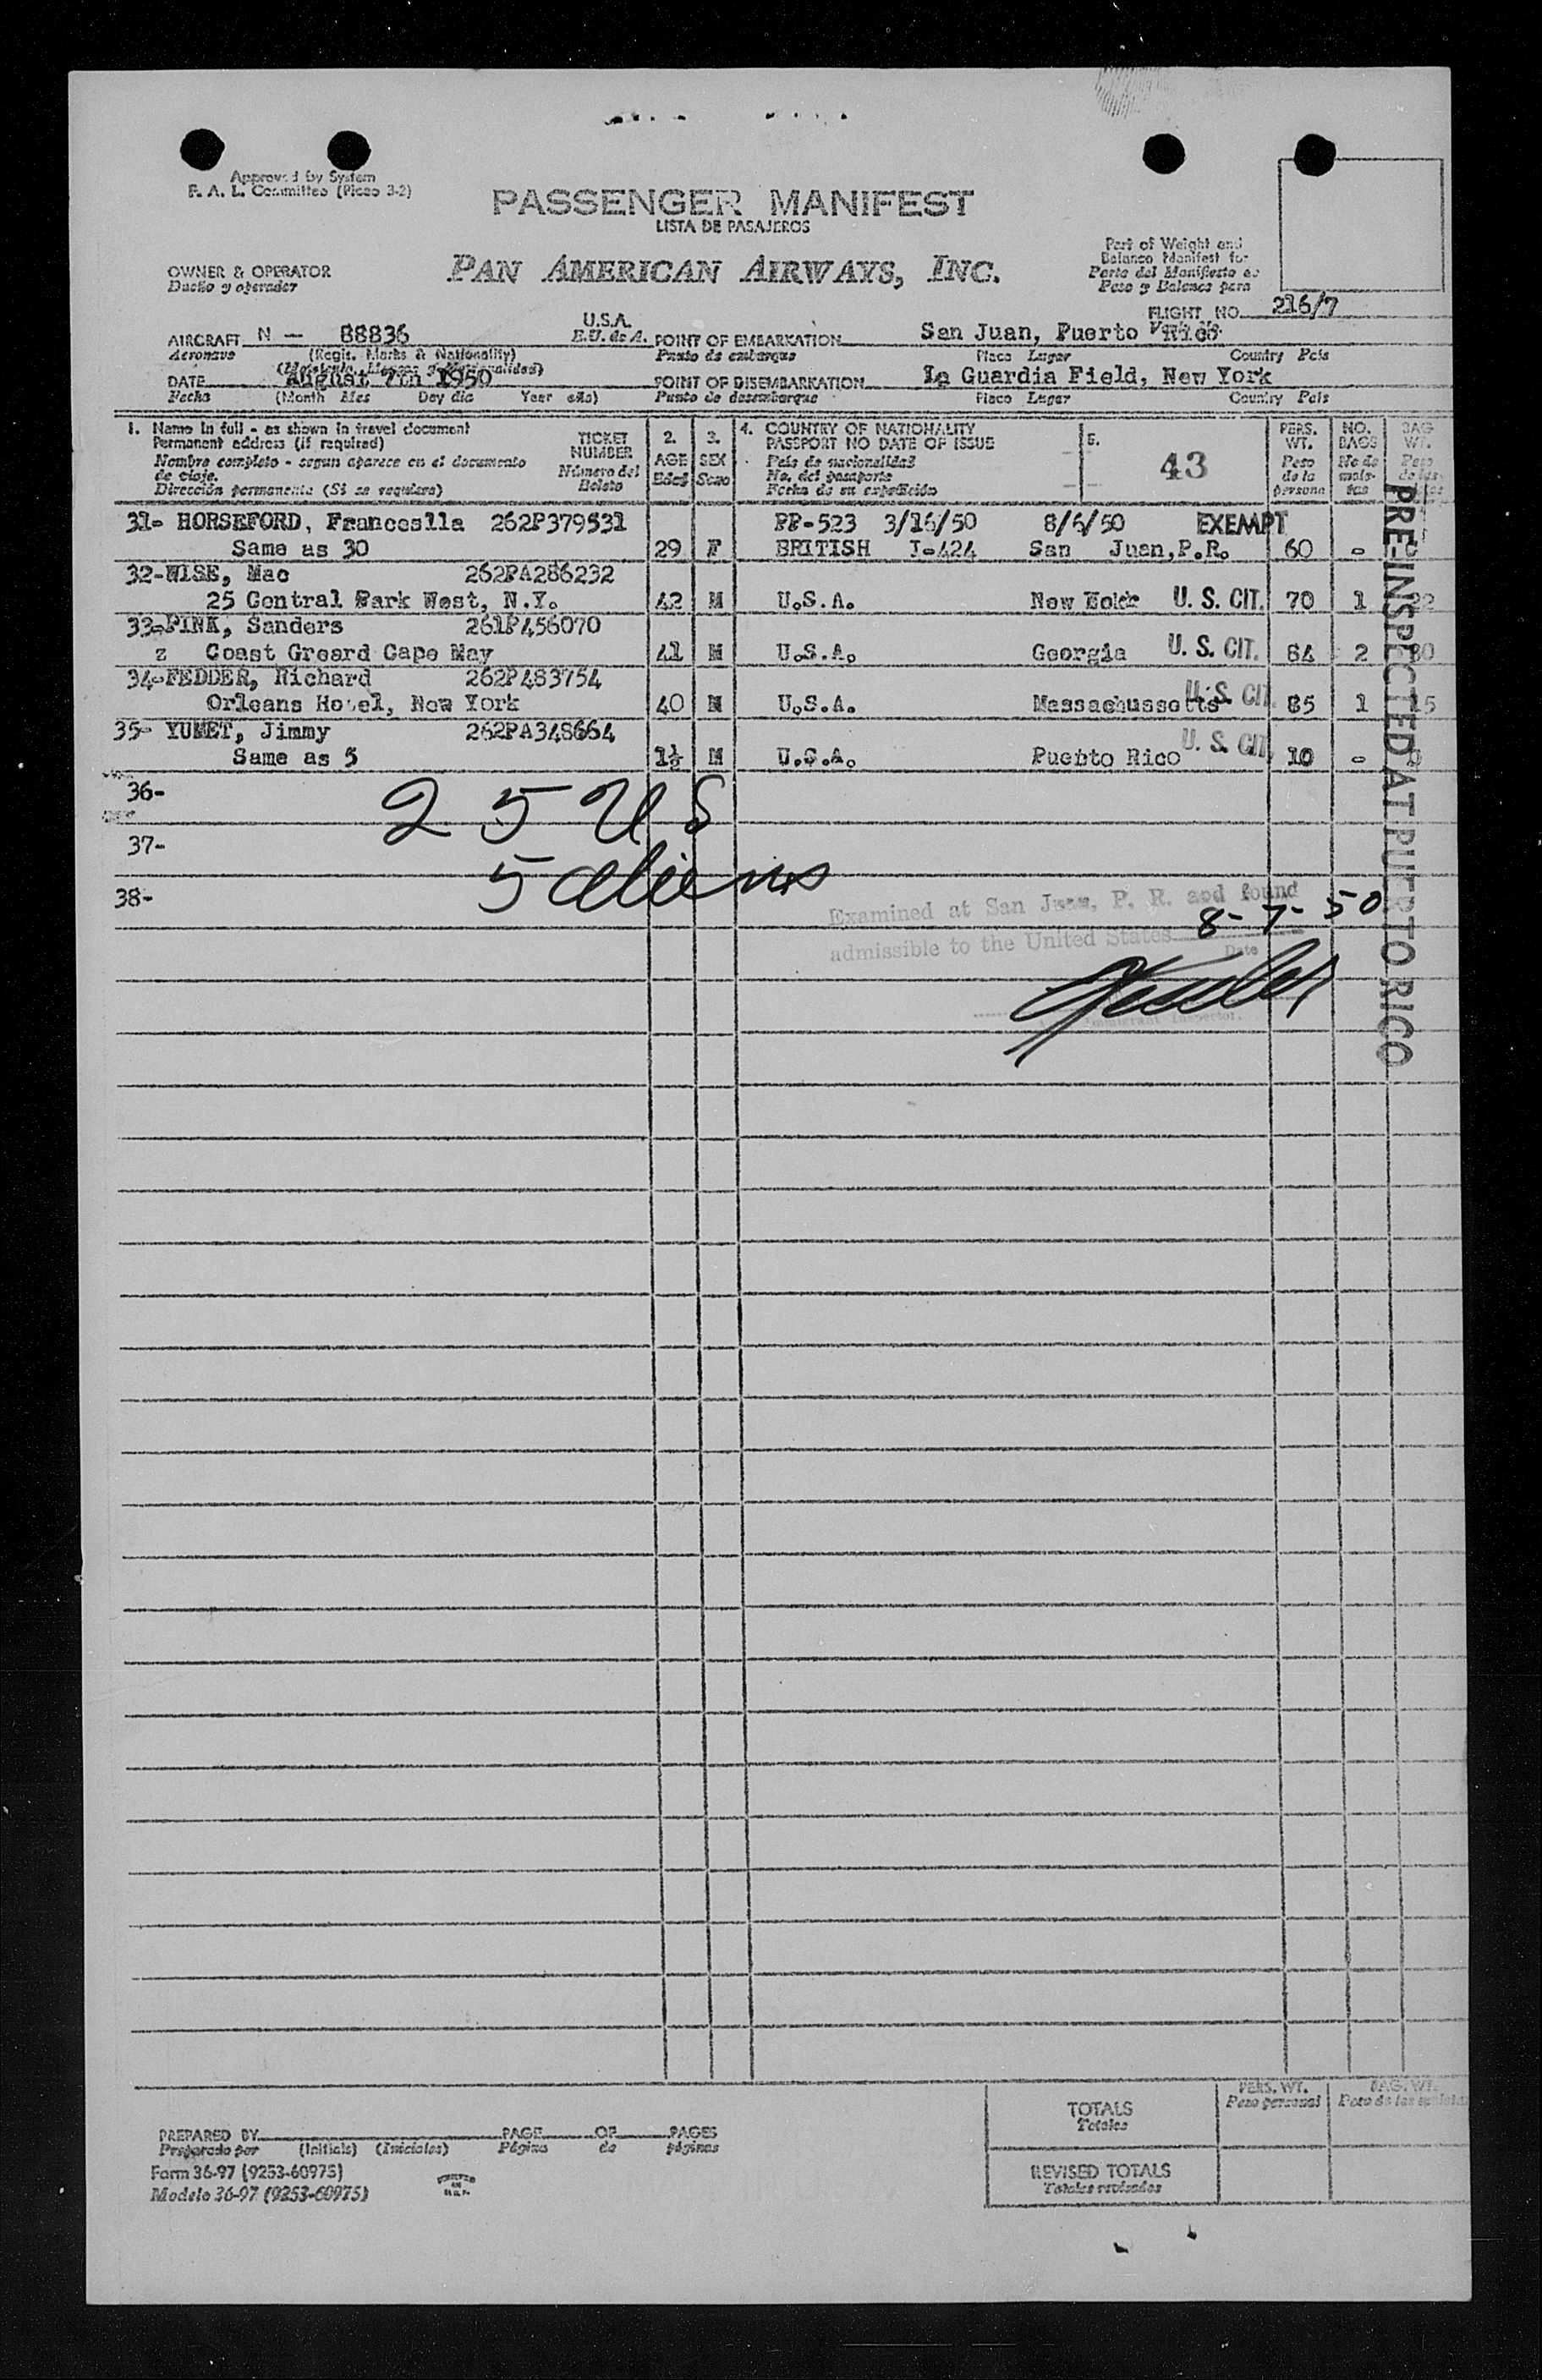 Approved by System
F. A. L. Committee (Picao 3-2)
PASSENGER MANIFEST
LISTA DE PASAJEROS
Part of Weight and
Balance Manifest for
Parte del Manifiesto de
Peso y Balance para
OWNER & OPERATOR
Dueño y operador
PAN AMERICAN AIRWAYS, INC.
FLIGHT NO. 216/7
AIRCRAFT N - 88836 U.S.A. POINT OF EMBARKATION San Juan, Puerto Rico
Aeronave (Regis. Marks & Nationality) E.U. de A. Punto de embarque Place Lugar Country Pais
DATE August 7th 1950 POINT OF DISEMBARKATION La Guardia Field, New York
Fecha (Month Mes Day dia Year año) Punto de desembarque Place Lugar Country Pais
1. Name in full - as shown in travel document
Permanent address (if required)
Nombre completo - segun aparece en el documento
de viaje.
Dirección permanente (Si se requiere)
TICKET
NUMBER
Número del
Boleto
2.
AGE
Edad
3.
SEX
Sexo
4. COUNTRY OF NATIONALITY
PASSPORT NO DATE OF ISSUE
Pais de nacionalidad
No. del pasaporte
Fecha de su expedición
5.
43
PERS.
WT.
Peso
de la
persona
NO.
BAGS
No de
male-
tas
BAG
WT.
Peso
31- HORSEFORD, Franceslla 262P379531 PP-523 3/16/50 8/6/50 EXEMPT
Same as 30 29 F BRITISH I-424 San Juan,P.R. 60 -
32-WISE, Mac 262PA286232
25 Central Park West, N.Y. 42 M U.S.A. New U. S. CIT. 70 1
33-PINK, Sanders 261P456070
z Coast Greard Cape May 41 M U.S.A. Georgia U. S. CIT. 84 2
34-FEDDER, Richard 262P483754
Orleans Hotel, New York 40 M U.S.A. Massachussetts U. S. CIT. 85 1 15
35- YUMET, Jimmy 262PA348664
Same as 5 1½ M U.S.A. Puerto Rico U. S. CIT. 10 -
36-
37-
38-
25 US
5 aliens
Examined at San Juan, P. R. and found
admissible to the United States 8-7-50
Date
Immigrant Inspector.
PRE-INSPECTED AT PUERTO RICO
TOTALS
Totales
PERS. WT.
Peso personal
BAG. WT.
REVISED TOTALS
Totales revisados
PREPARED BY PAGE OF PAGES
Preparado por (Initials) (Iniciales) Página de páginas
Form 36-97 (9253-60975)
Modelo 36-97 (9253-60975)